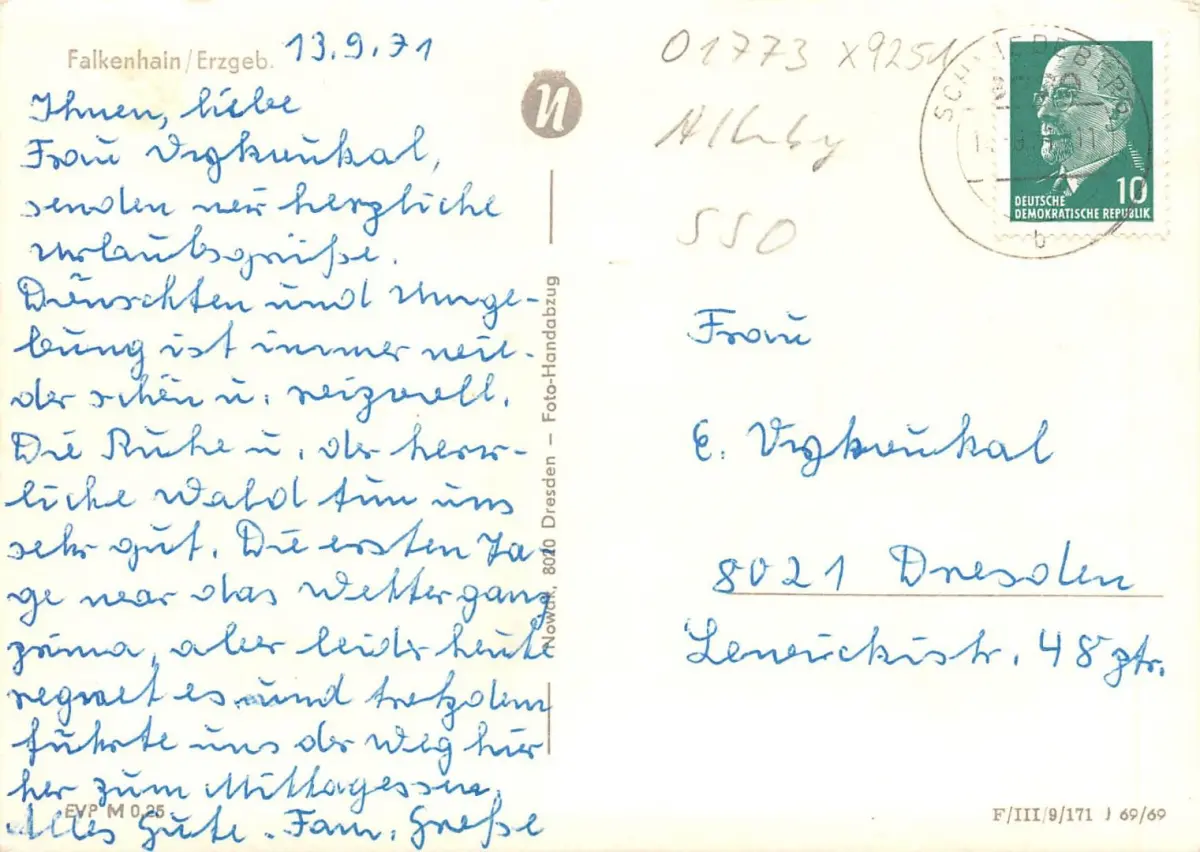 Falkenhain/Erzgeb. 13.9.71
Ihnen, liebe
Frau
senden wir herzliche
Urlaubsgrüße.
und Umge-
bung ist immer wie-
der schön u. reizvoll.
Die Ruhe u. der herr-
liche Wald tun uns
sehr gut. Die ersten Ta
ge war das Wetter ganz
prima, aber leider heute
regnet es und trotzdem
führte uns der Weg hier
her zum Mittagessen.
Alles Gute. Fam. Große
EVP M 0,25
N
Nowak, 8020 Dresden – Foto-Handabzug
01773 x9251
550
SCHMIEDEBERG
b
10
DEUTSCHE
DEMOKRATISCHE REPUBLIK
Frau
E.
8021 Dresden
48 ptr.
F/III/9/171 J 69/69